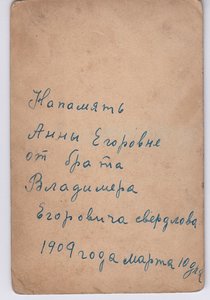 Напамять
Анны Егоровне
от брата
Владимера
Егоровича свердлова
1909 года марта 10 дня